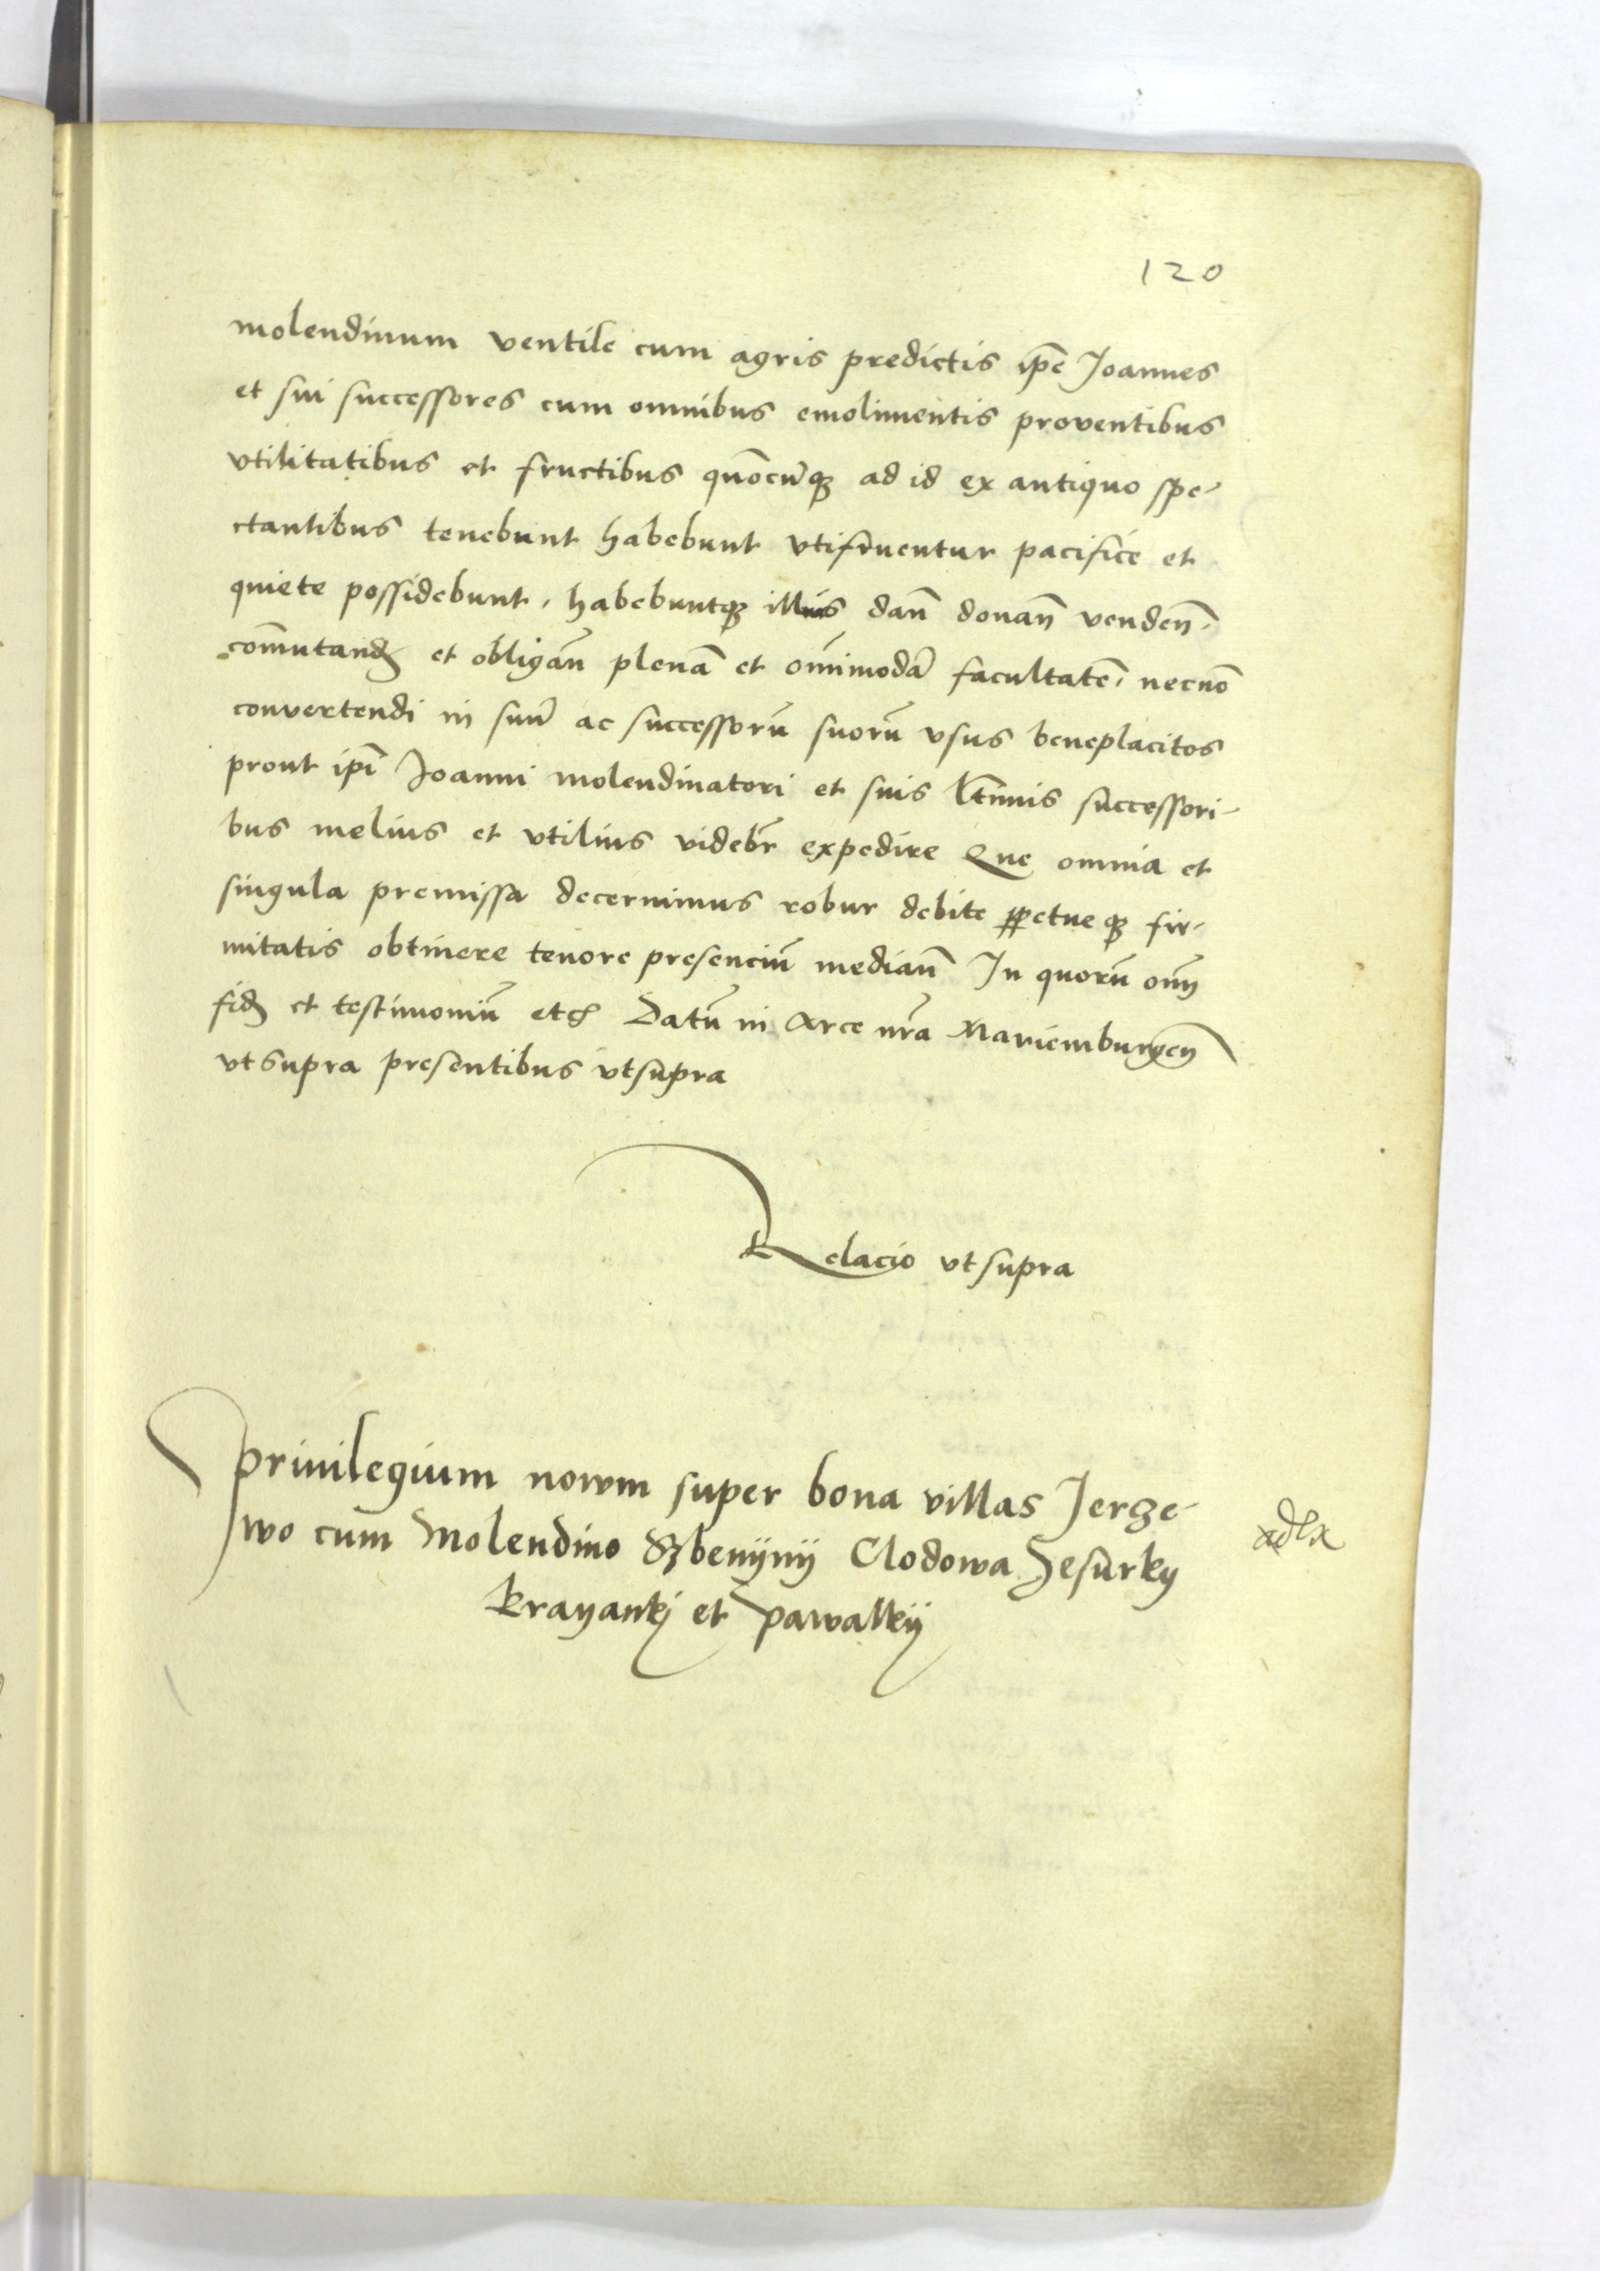 120
molendinum ventile cum agris predictis ip̄e Joannes
et sui successores cum omnibus emolimentis proventibus
vtilitatibus et fructibus quōcūqȝ ad id ex antiquo spe-
ctantibus tenebunt habebunt vtifruentur pacifice et
quiete possidebunt, habebuntqȝ illius dan̄ donan̄ venden̄.
com̄utand et obligan̄ plenā et om̄imodā facultatē, necnō
convertendi in suū ac successorū suorū vsus beneplacitos
prout ip̄i Joanni molendinatori et suis ltimis successori-
bus melius et vtilius videbr̄ expedire Que omnia et
singula premissa decernimus robur debite ꝑpetue qȝ fir-
mitatis obtinere tenore presenciū median̄ In quorū om̄
fid et testimoniū etc Datū in Arce nr̄a Mariemburgen̄
vt supra presentibus vt supra
Relacio vt supra
Privilegium nowm super bona villas Jerze-
wo cum Molendino Szbenijnij Clodowa Jesurky
Krayankj et Pawalkij